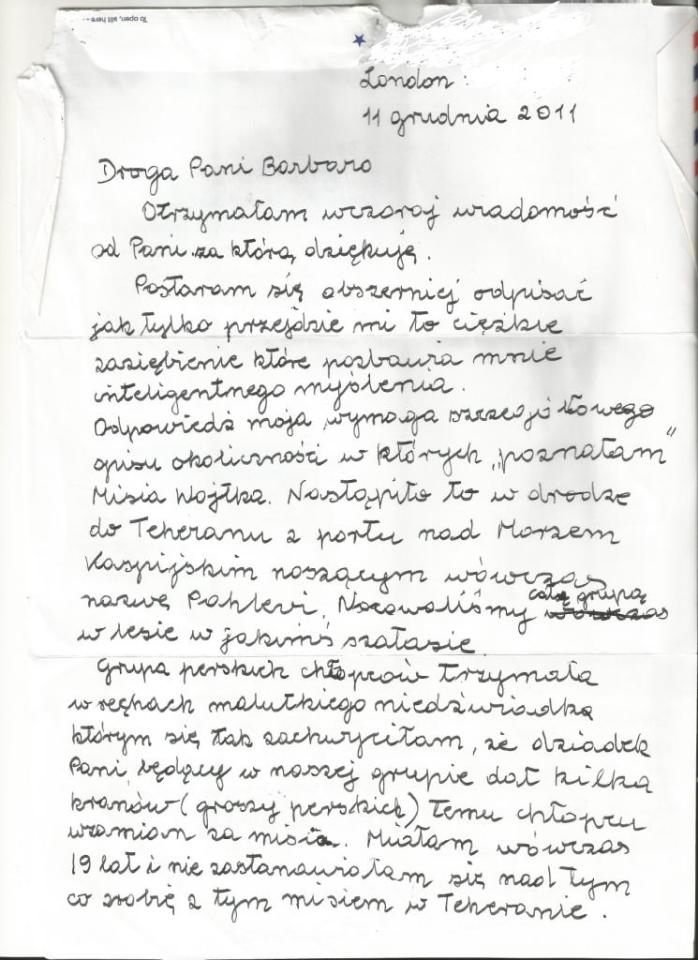 To open, slit here
London:
11 grudnia 2011
Droga Pani Barbaro
Otrzymałam wczoraj wiadomość
od Pani za którą dziękuję.
Postaram się obszerniej odpisać
jak tylko przejdzie mi to ciężkie
zaziębienie które pozbawia mnie
inteligentnego myślenia.
Odpowiedź moja wymaga szczegółowego
opisu okoliczności w których „poznałam”
Misia Wojtka. Nastąpiło to w drodze
do Teheranu z portu nad Morzem
Kaspijskim noszącym wówczas
nazwę Pahlevi. Nocowaliśmy całą grupą
w lesie w jakimś szałasie.
Grupa perskich chłopców trzymała
w rękach malutkiego niedźwiadka
którym się tak zachwyciłam, że dziadek
Pani, będący w naszej grupie dał kilka
kranów (groszy perskich) temu chłopcu
wzamian za misia. Miałam wówczas
19 lat i nie zastanawiałam się nad tym
co zrobię z tym misiem w Teheranie.